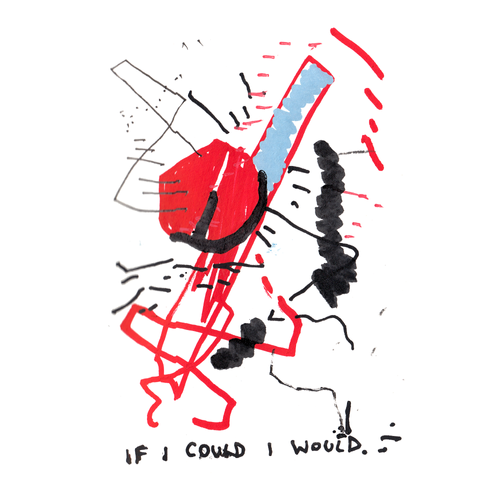 IF I COULD I WOULD.